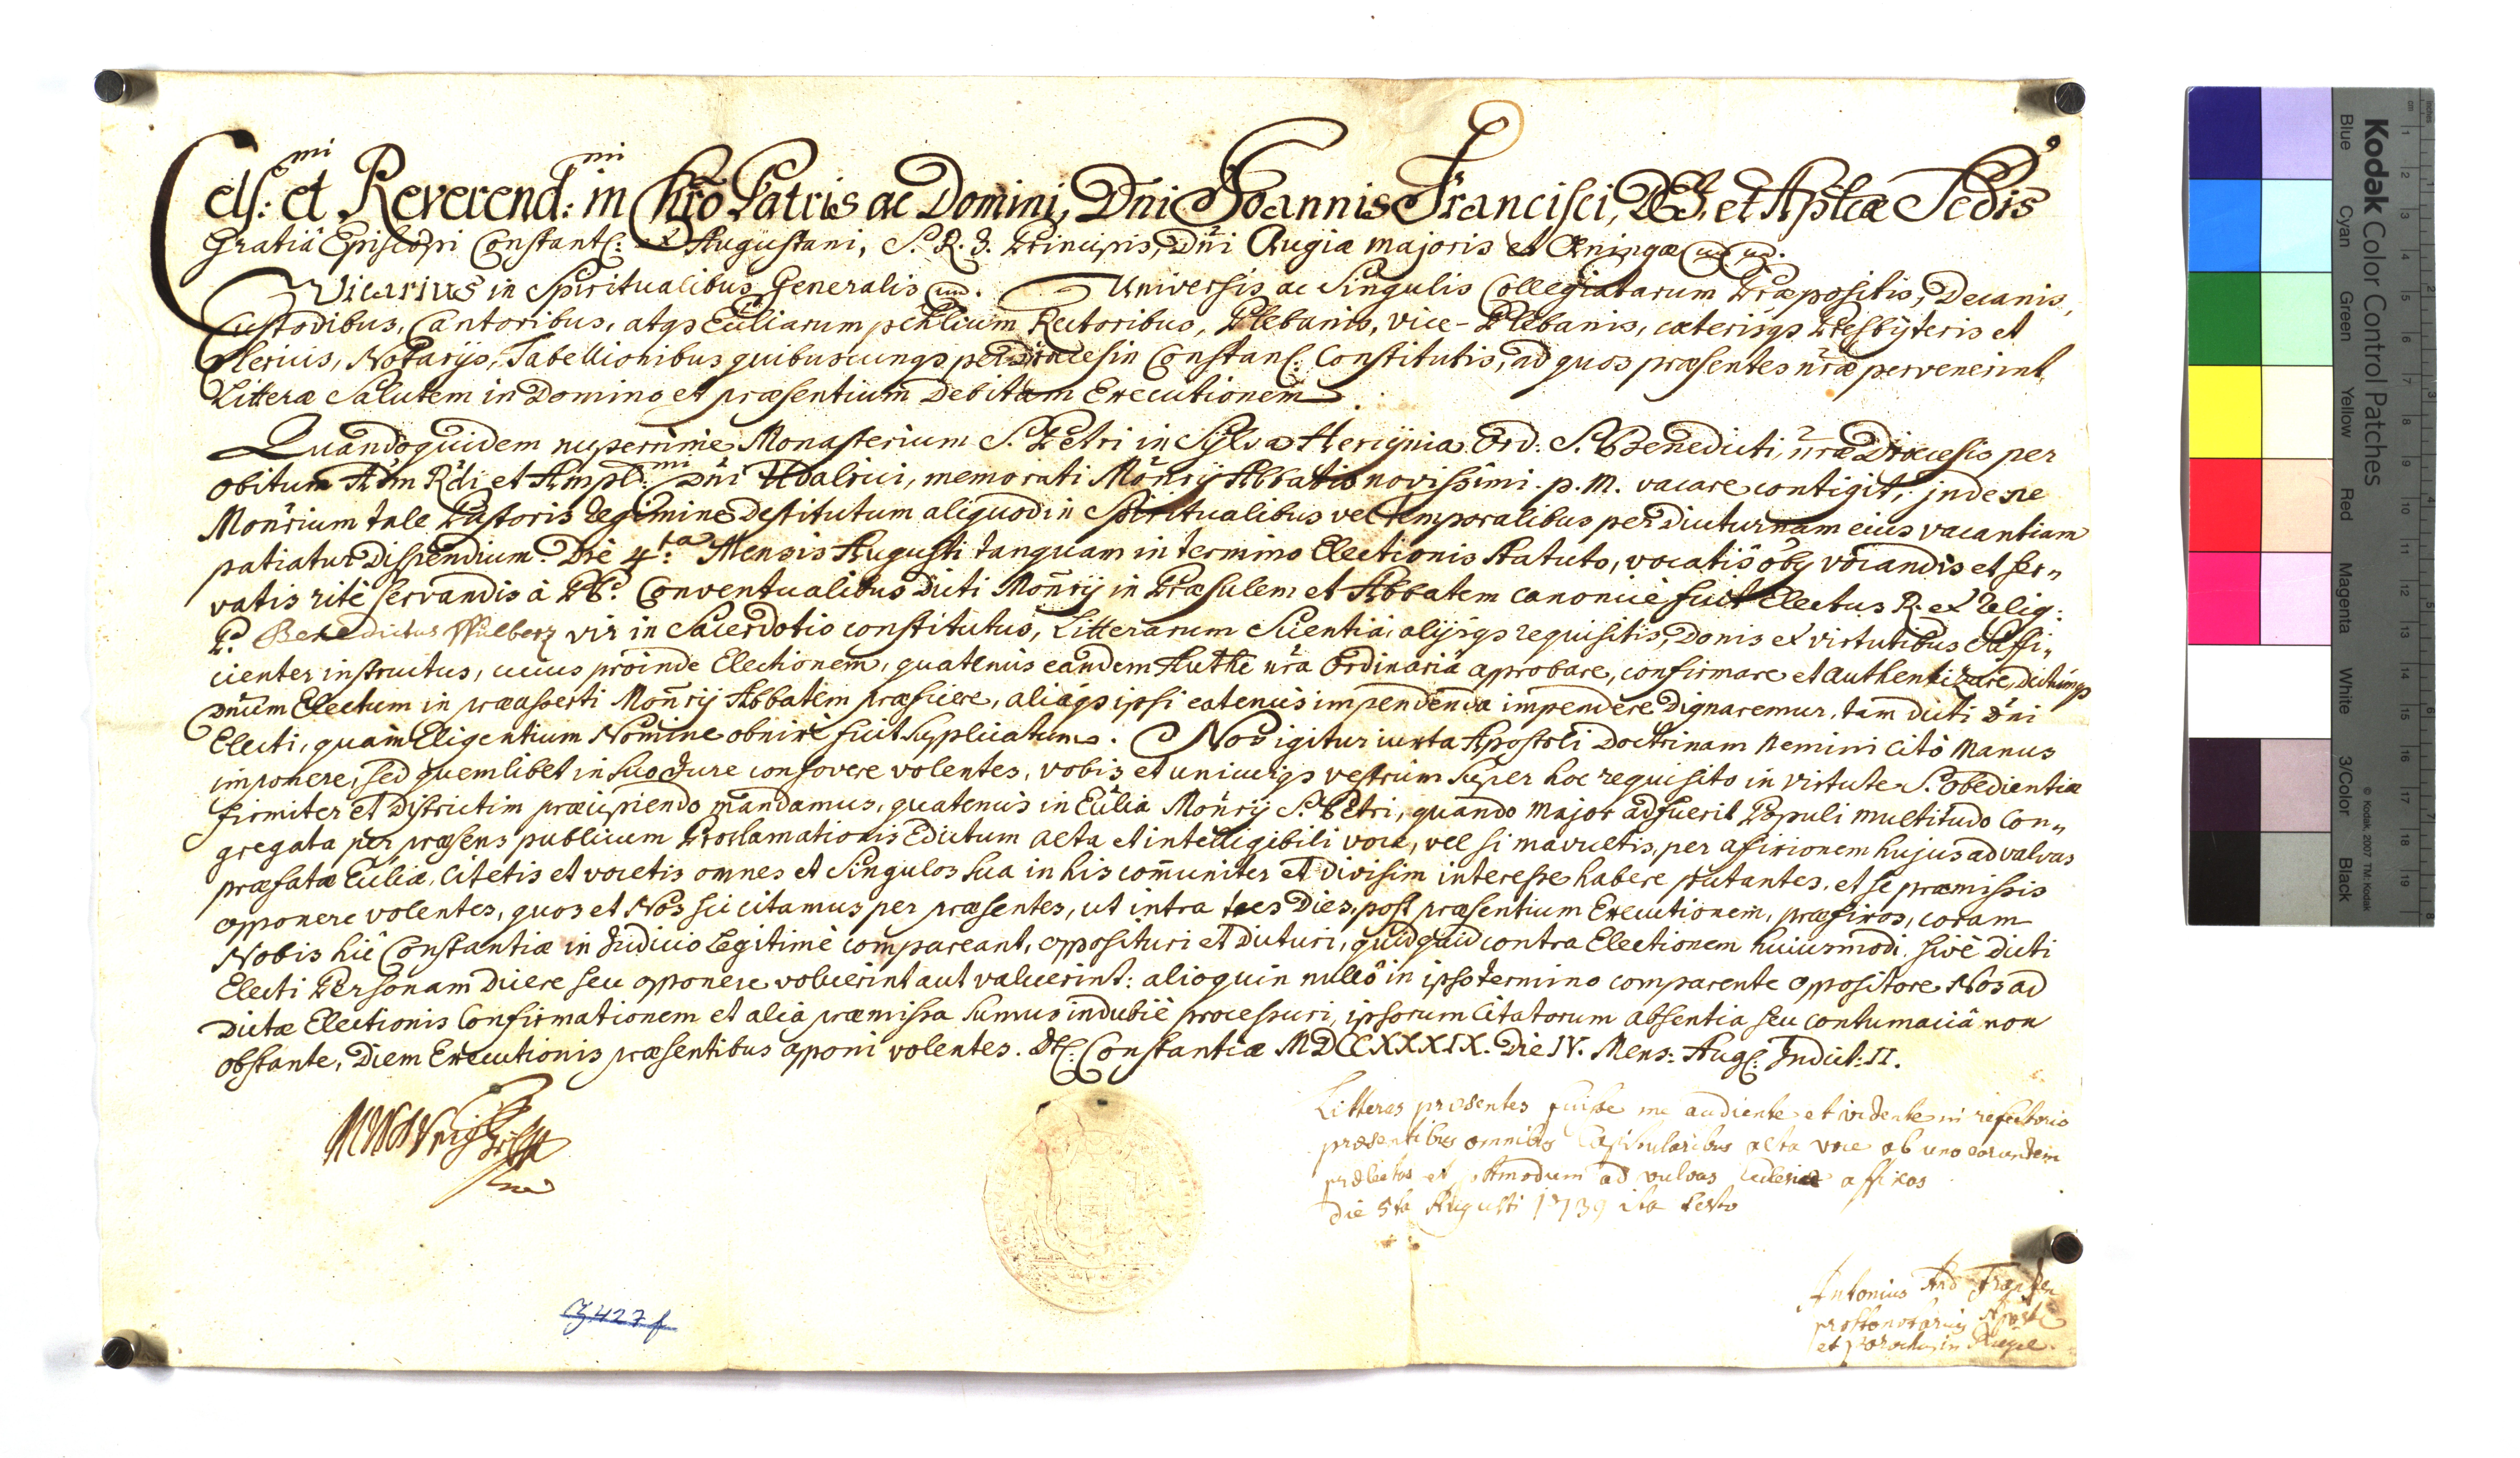 Cels:mi et Reverend:mi in Chrõ Patris ac Domini, Dñi Joannis Francisci, DEI, et Aplicæ Sedis
Gratiâ Episcopi Constants: et Augustani, S. R. I. Principis, Dñi Augiæ majoris et Æningæ
Vicarius in Spiritualibus Generalis Universis ac Singulis Collegiatarum Præpositis, Decanis,
Custodibus, Cantoribus, atqs Eccliarum pchlium Rectoribus, Plebanis, vice-Plebanis, cæterisqs Presbÿteris et
Clericis, Notarÿs, Tabellionibus quibuscunqs per Diœcesin Constans: Constitutis, ad quos præsentes nr̃æ pervenerint,
Litteræ Salutem in Domino et præsentium Debitam Executionem.
Quandoquidem nuperrime Monasterium S. Petri in Sylva Hercÿnia Ord: S. Benedicti, nr̃æ Diœcesis per
obitum Adm Rdi et Ampl:mi Dñi Udalrici, memorati Moñrÿ Abbatis novissimi. p. m. vacare contigit, jnde ne
Moñrium tale Pastoris regimine Destitutum aliquod in Spiritualibus vel temporalibus per diuturnam eius vacantiam
patiatur Dispendium. Die 4.ta Mensis Augusti tanquam in termino Electionis statuto, vocatis oby vocandis et ser„
vatis ritè servandis à PP. Conventualibus dicti Moñrÿ in Præsulem et Abbatem canonicè fuit Electus R. et Relig:
P. Benedictus Wülberz vir in Sacerdotio constitutus, Litterarum Scientiâ, alÿsqs requisitis, Donis et virtutibus suffi„
cienter instructus, cuius proinde Electionem, quatenus eandem Authe nr̃a Ordinariâ aprobare, confirmare et authentizare, dictumqs
Dñum Electum in præasserti Moñrÿ Abbatem præficere, aliaqs ipsi eatenus impendenda impendere Dignaremur, tam dicti Dñi
Electi, quam Eligentium Nomine obnixè fuit supplicatum. Nos igitur iuxta Apostoli Doctrinam Nemini citò Manus
imponere, sed quemlibet in suo Jure confovere volentes, vobis et unicuiqs vestrum super hoc requisito in virtute S. obedientiæ
firmiter et Districtim præcipiendo mandamus, quatenus in Ecclia Moñrÿ S. Petri, quando major adfuerit Populi multitudo Con„
gregata per præsens publicum Proclamationis Edictum alta et intelligibili voce, vel si mavultis, per afixionem hujus ad valvas
præfatæ Eccliæ, Citetis et vocetis omnes et Singulos sua in his com̃uniter et divisim interesse habere putantes, et se præmissis
opponere volentes, quos et Nos sic citamus per præsentes, ut intra tres Dies, post præsentium Executionem, præfixos, coram
Nobis hîc Constantiæ in Judicio Legitimè compareant, opposituri et dicturi, quidquid contra Electionem huiusmodi, sivè dicti
Electi Personam dicere seu opponere voluerint aut valuerint: alioquin nullô in ipso termino comparente oppositore Nos ad
dictæ Electionis Confirmationem et alia præmissa sumus indubiè processuri, ipsorum Citatorum absentiâ seu contumaciâ non
obstante, Diem Executionis præsentibus aponi volentes. Dt: Constantiæ MDCCXXXIX. Die IV. Mens: Aug: Indict: II.
Litteras præsentes fuisse me audiente et vidente in refectorio
præsentibus omnibus Capitularibus alta voce ab uno eorundem
prælectas et postmodum ad valvas ecclesiæ affixas
die 5ta Augusti 1739 ita testor
Antonius And
protonotarius Apost
et parochus in
427 f
Kodak Color Control Patches
Blue Cyan Green Yellow Red Magenta White 3/Color Black
© Kodak, 2007 TM: Kodak
cm 1 2 3 4 5 6 7 8 9 10 11 12 13 14 15 16 17 18 19
inches 1 2 3 4 5 6 7 8